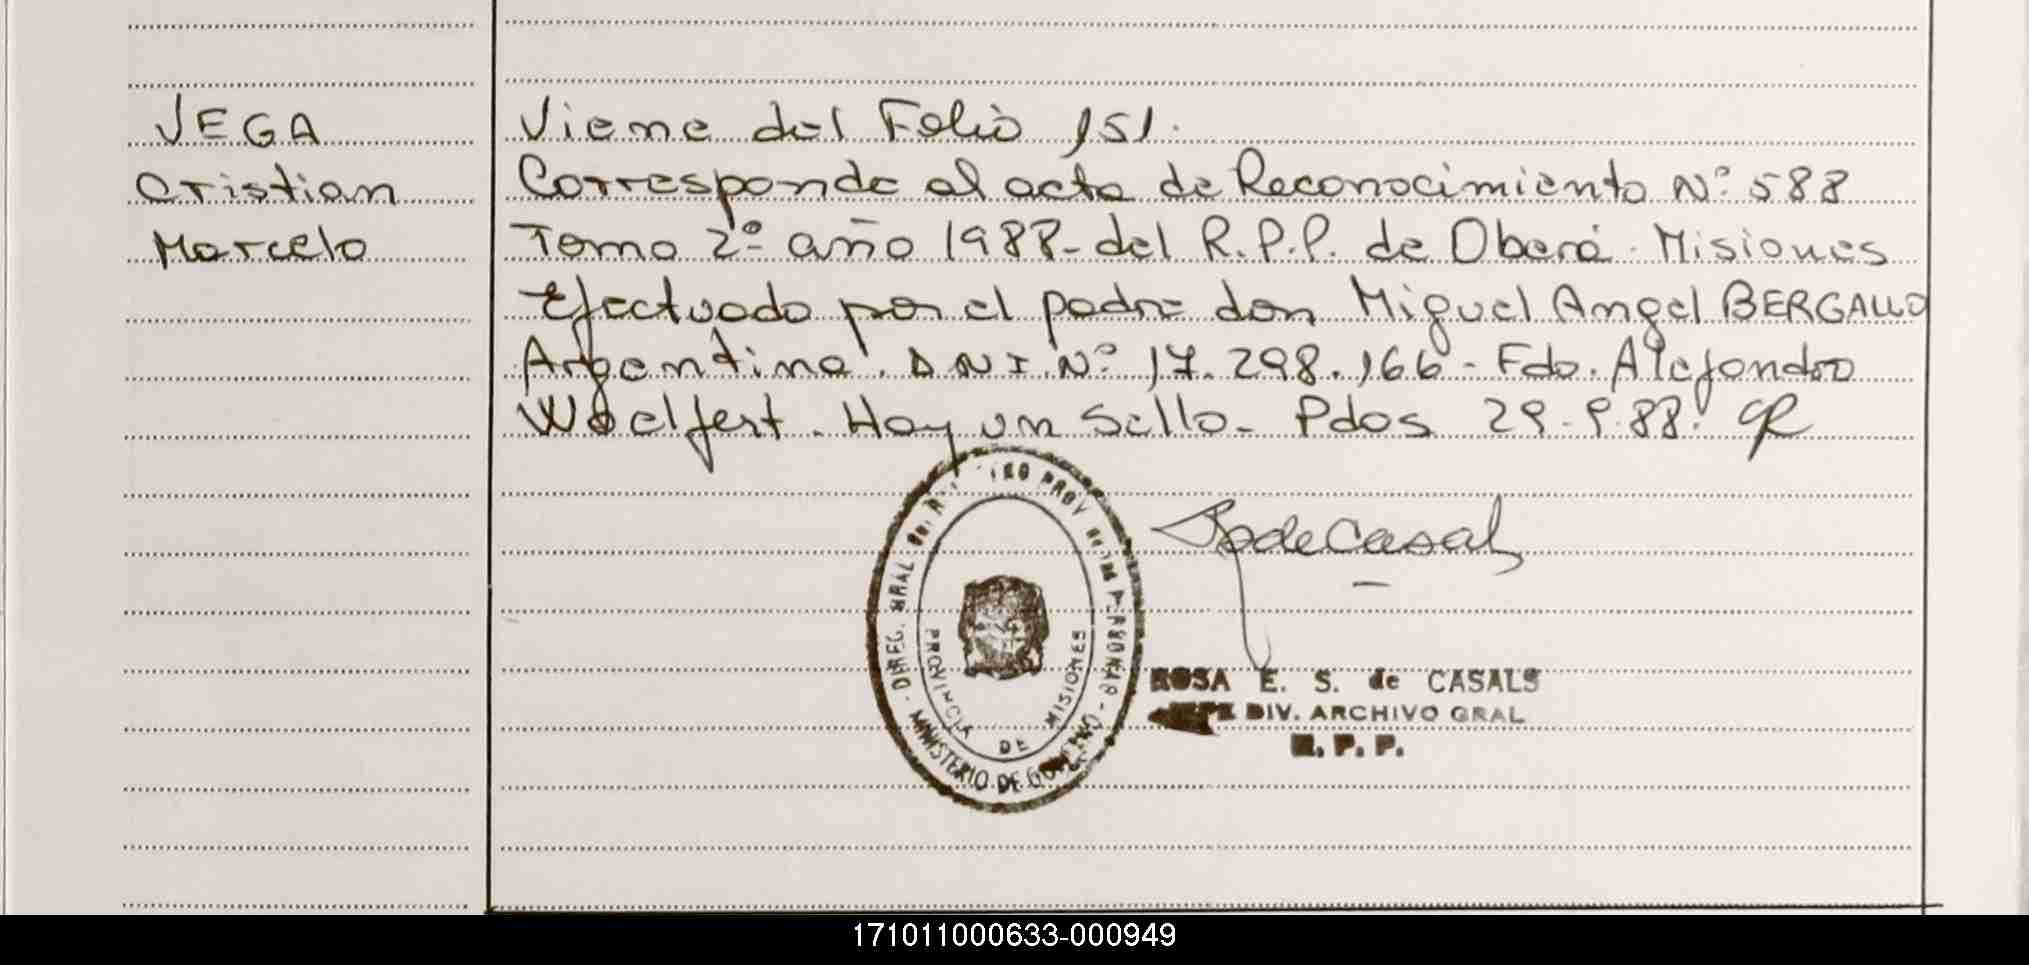 VEGA
Cristian
Marcelo
Viene del Folio 151.
Corresponde al acta de Reconocimiento Nº 588
Tomo 2º año 1988- del R.P.P. de Oberá - Misiones
Efectuado por el padre don Miguel Angel BERGALLO
Argentino. DNI. Nº 17.298.166 - Fdo. Alejandro
Woelfert. Hay un Sello- Pdos 29.9.88.
DIREG. GRAL PROV PERSONAS
MINISTERIO DE GOBIERNO
PROVINCIA DE MISIONES
de Casals
ROSA E. S. de CASALS
JEFE DIV. ARCHIVO GRAL
R. P. P.
171011000633-000949